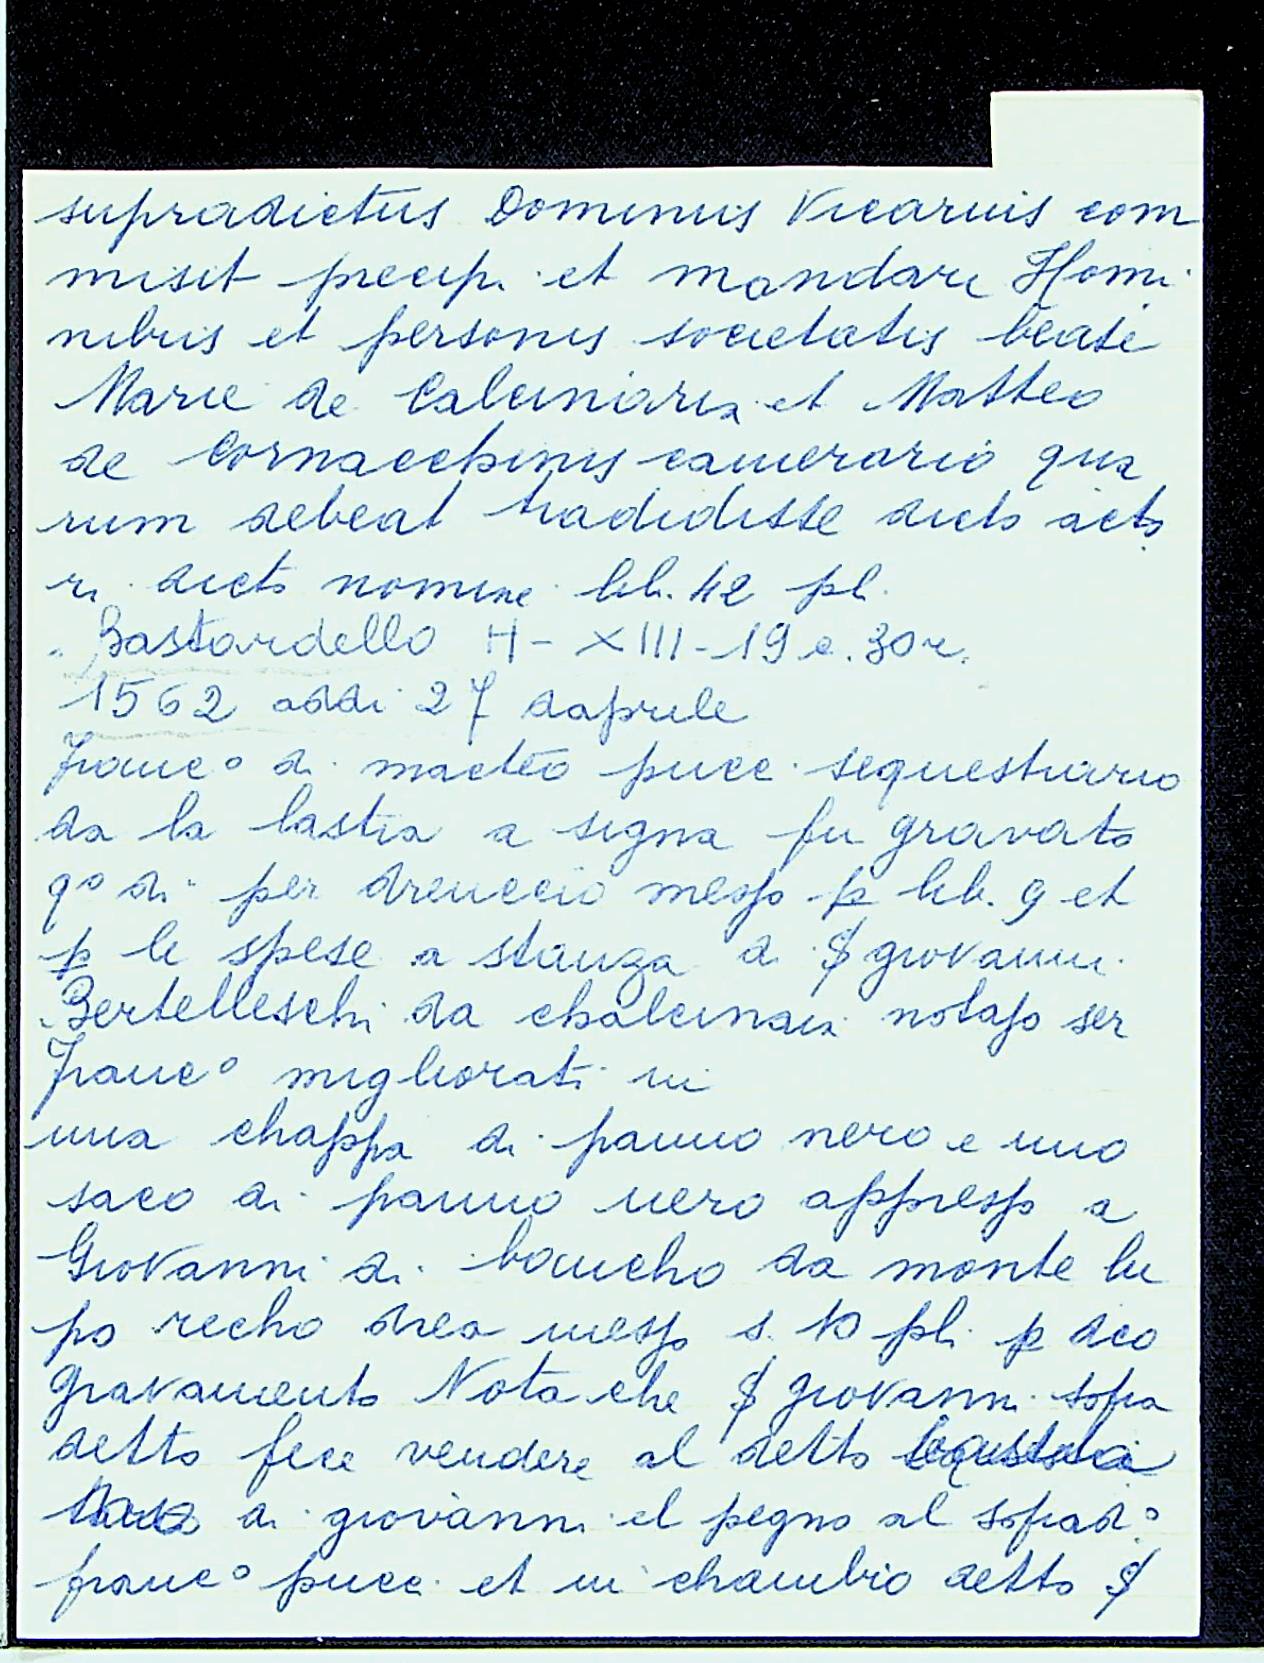 supradictus Dominus Vicarius com
misit precip. et mandari Homi
nibus et personis societatis beate
Marie de Calcinaria et Matteo
de Cornacchinis camerario qua
rum debeat tradidisse dicto acto
ri dicto nomine lib. 42 pl.
Bastardello H - XIII - 19 c. 30r.
1562 addi 27 daprile
franc° di matteo pucci sequestrario
da la lastra a signa fu gravato
q° di per dreuccio messo p lib. 9 et
p le spese a stanza di $ giovanni
Bertelleschi da chalcinaia notaio ser
franc° migliorati in
una chappa di panno nero e uno
saco di panno nero appresso a
Giovanni di bancho da monte lu
po recho drea messo s. 10 pli p dco
gravamento Nota che $ giovanni sopra
detto fece vendere al detto
di giovanni el pegno al soprad°
franc° pucci et in chambio detto $